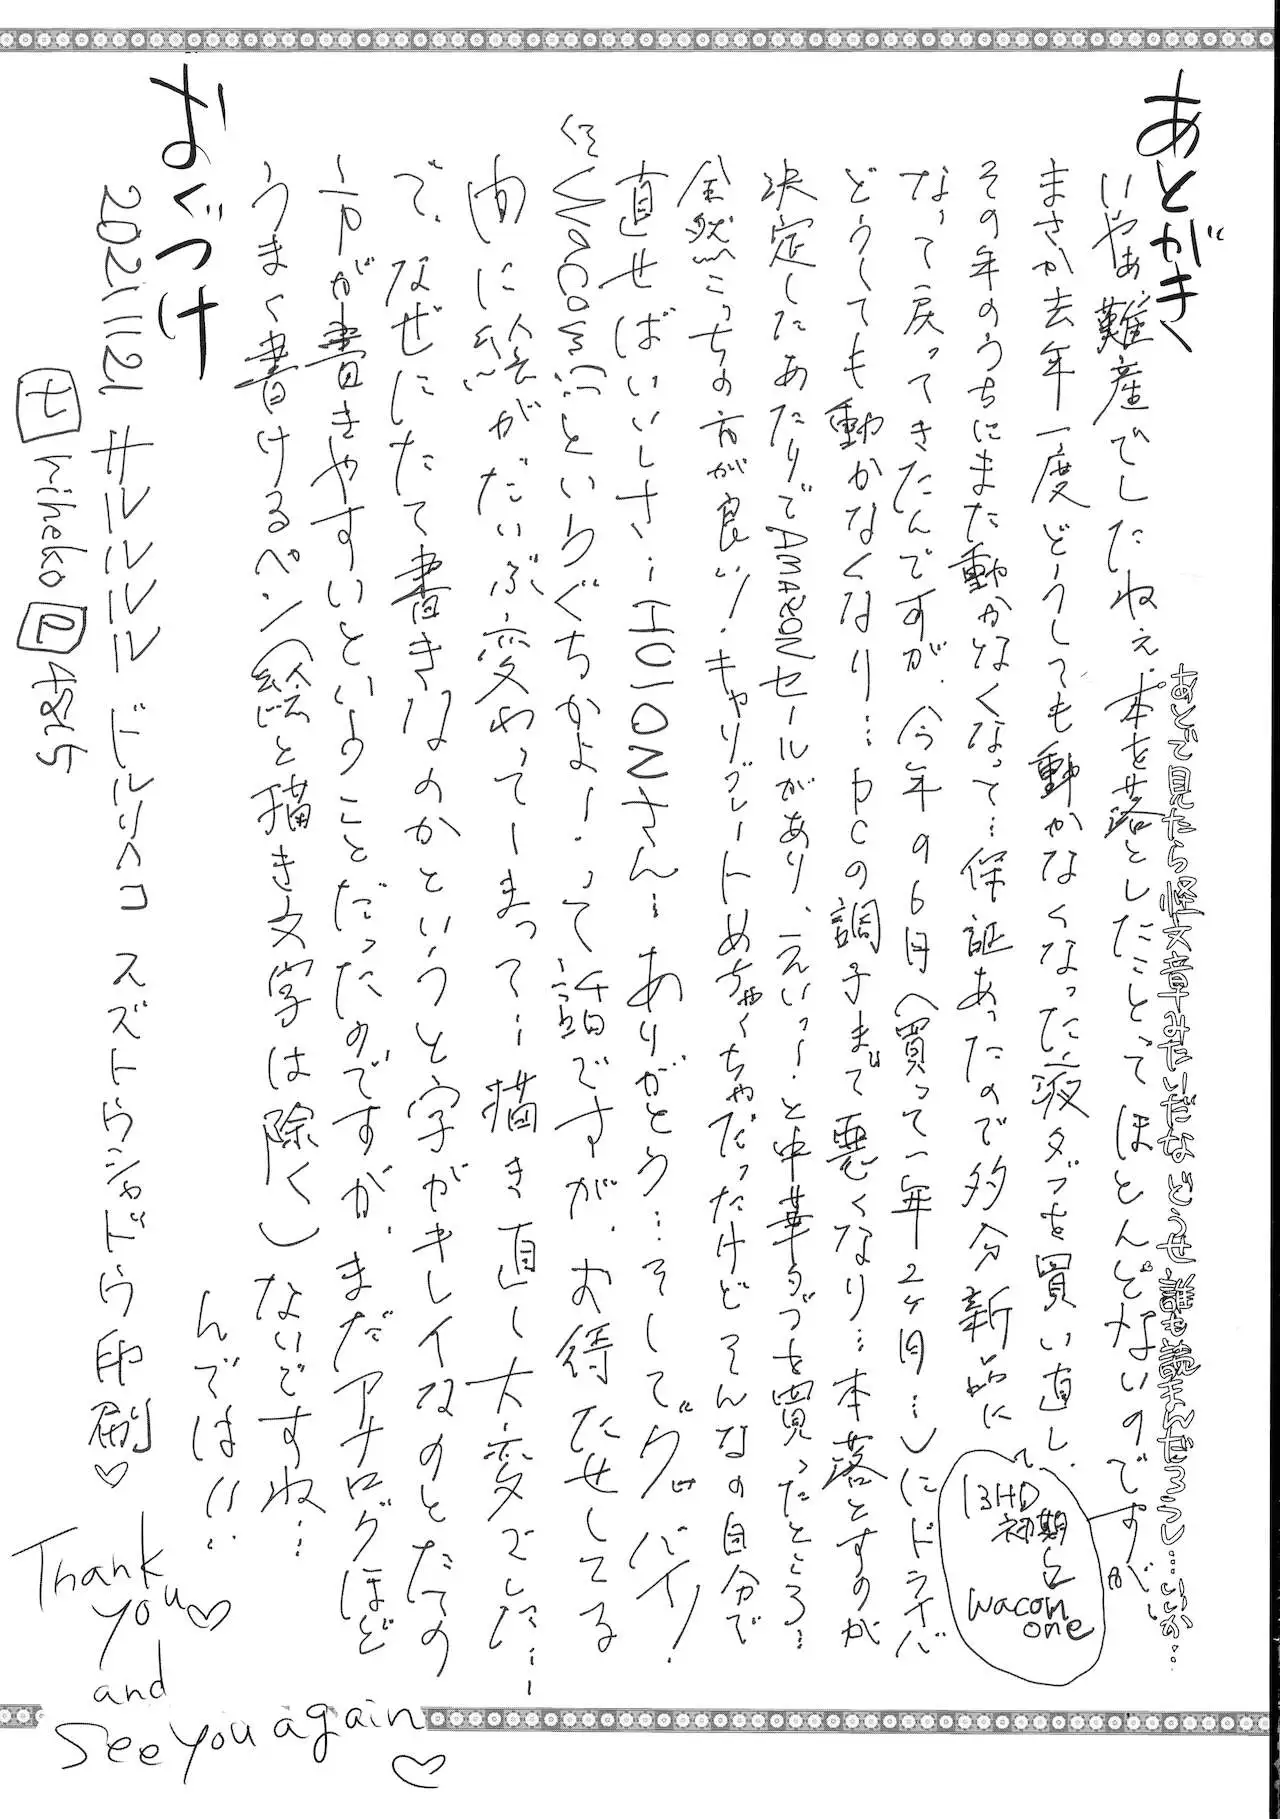 あとがき
あとで見たら怪文章みたいだな どうせ誰も読まんだろうし…いいか…
いやぁ難産でしたねぇ.本を落としたことってほとんどないのですが…
まさか去年一度どうしても動かなくなった液タブを買い直し、
13HD
初期と
wacom
one
その年のうちにまた動かなくなって…保証あったので多分新品に
なって戻ってきたんですが、今年の6月(買って一年2ヶ月…)にドライバ
どうしても動かなくなり…PCの調子まで悪くなり…本落とすのが
決定したあたりでAMAZONセールがあり、えいっ!と中華タブを買ったところ…
全然こっちの方が良い!キャリブレートめちゃくちゃだったけどそんなの自分で
直せばいいしさ…HUIONさん…ありがとう…そしてグッバイ!
Wacom…というぐちかよ!って話ですが、お待たせしてる
間に絵がだいぶ変わってしまって…描き直し大変でした…
で、なぜにたて書きなのかというと字がキレイなのとたての
方が書きやすいということだったのですが、まだアナログほど
うまく書けるペン(絵と描き文字は除く)ないですね…
んでは!!
おくづけ
2021.11.21 サルルルル ドルリヘコ スズトウシャドウ印刷♡
kiheko
Thank
you♡
and
See you again
♡